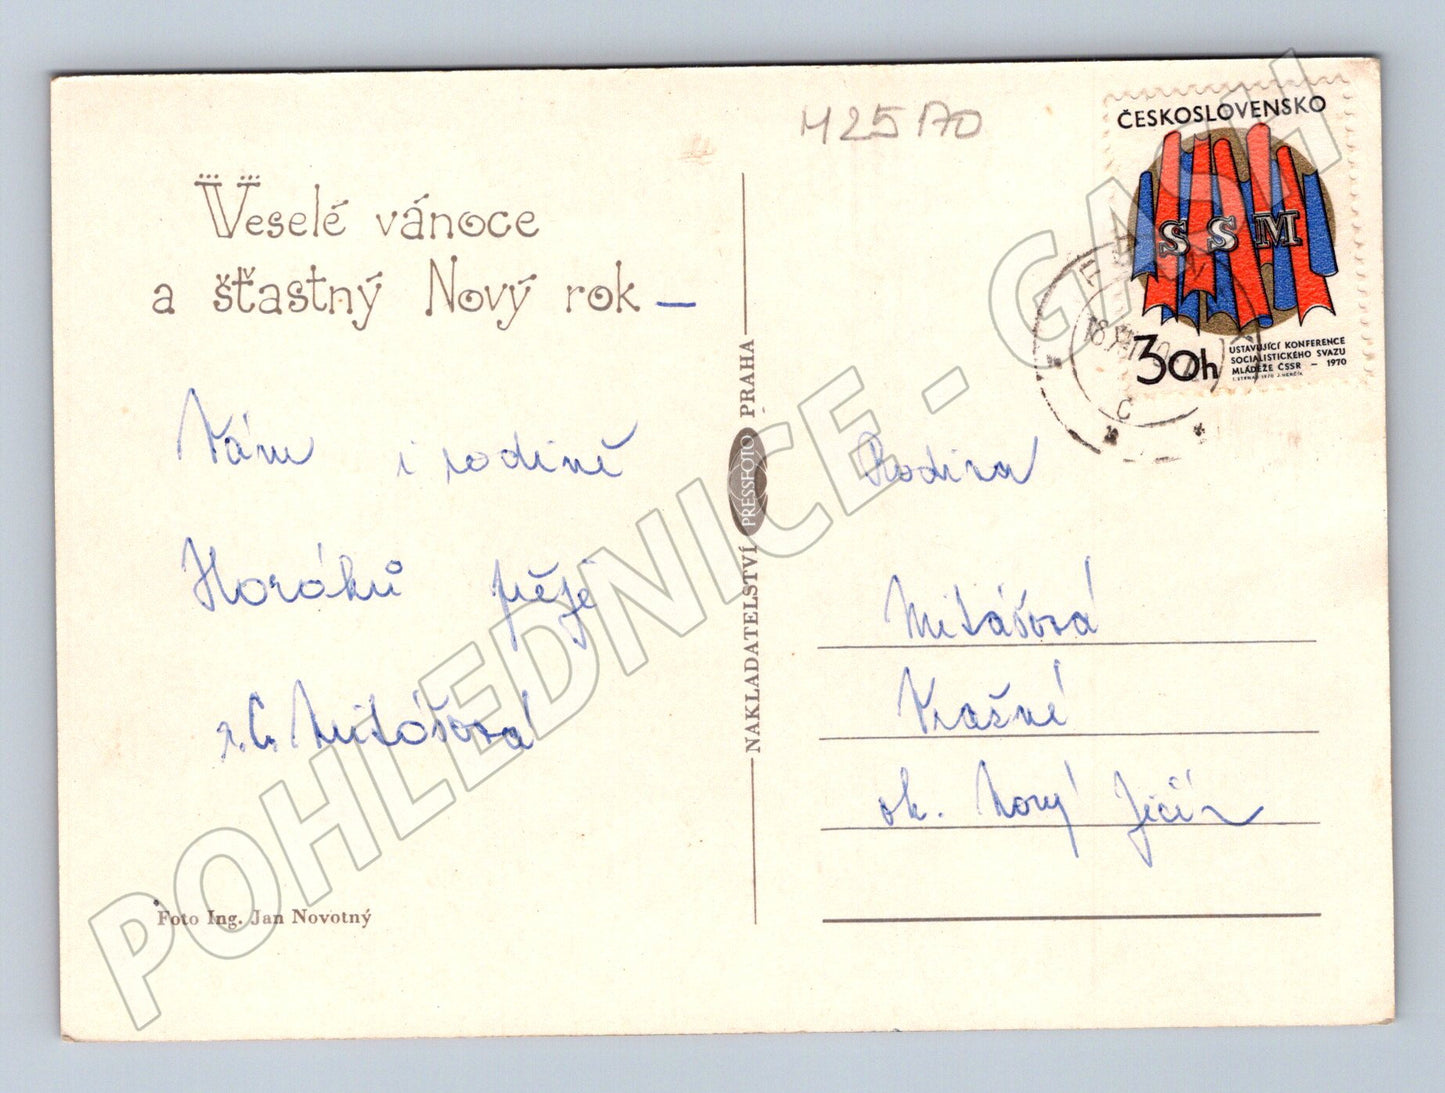 M25170
ČESKOSLOVENSKO
SSM
30h
USTAVUJÍCÍ KONFERENCE
SOCIALISTICKÉHO SVAZU
MLÁDEŽE ČSSR – 1970
Veselé vánoce
a šťastný Nový rok –
Vám i rodině
Horáků přejí
r. Č. Mitášová
Foto Ing. Jan Novotný
NAKLADATELSTVÍ PRESSFOTO PRAHA
Rodina
Mitášová
Krašné
ok. Nový Jičín
POHLEDNICE - GASH